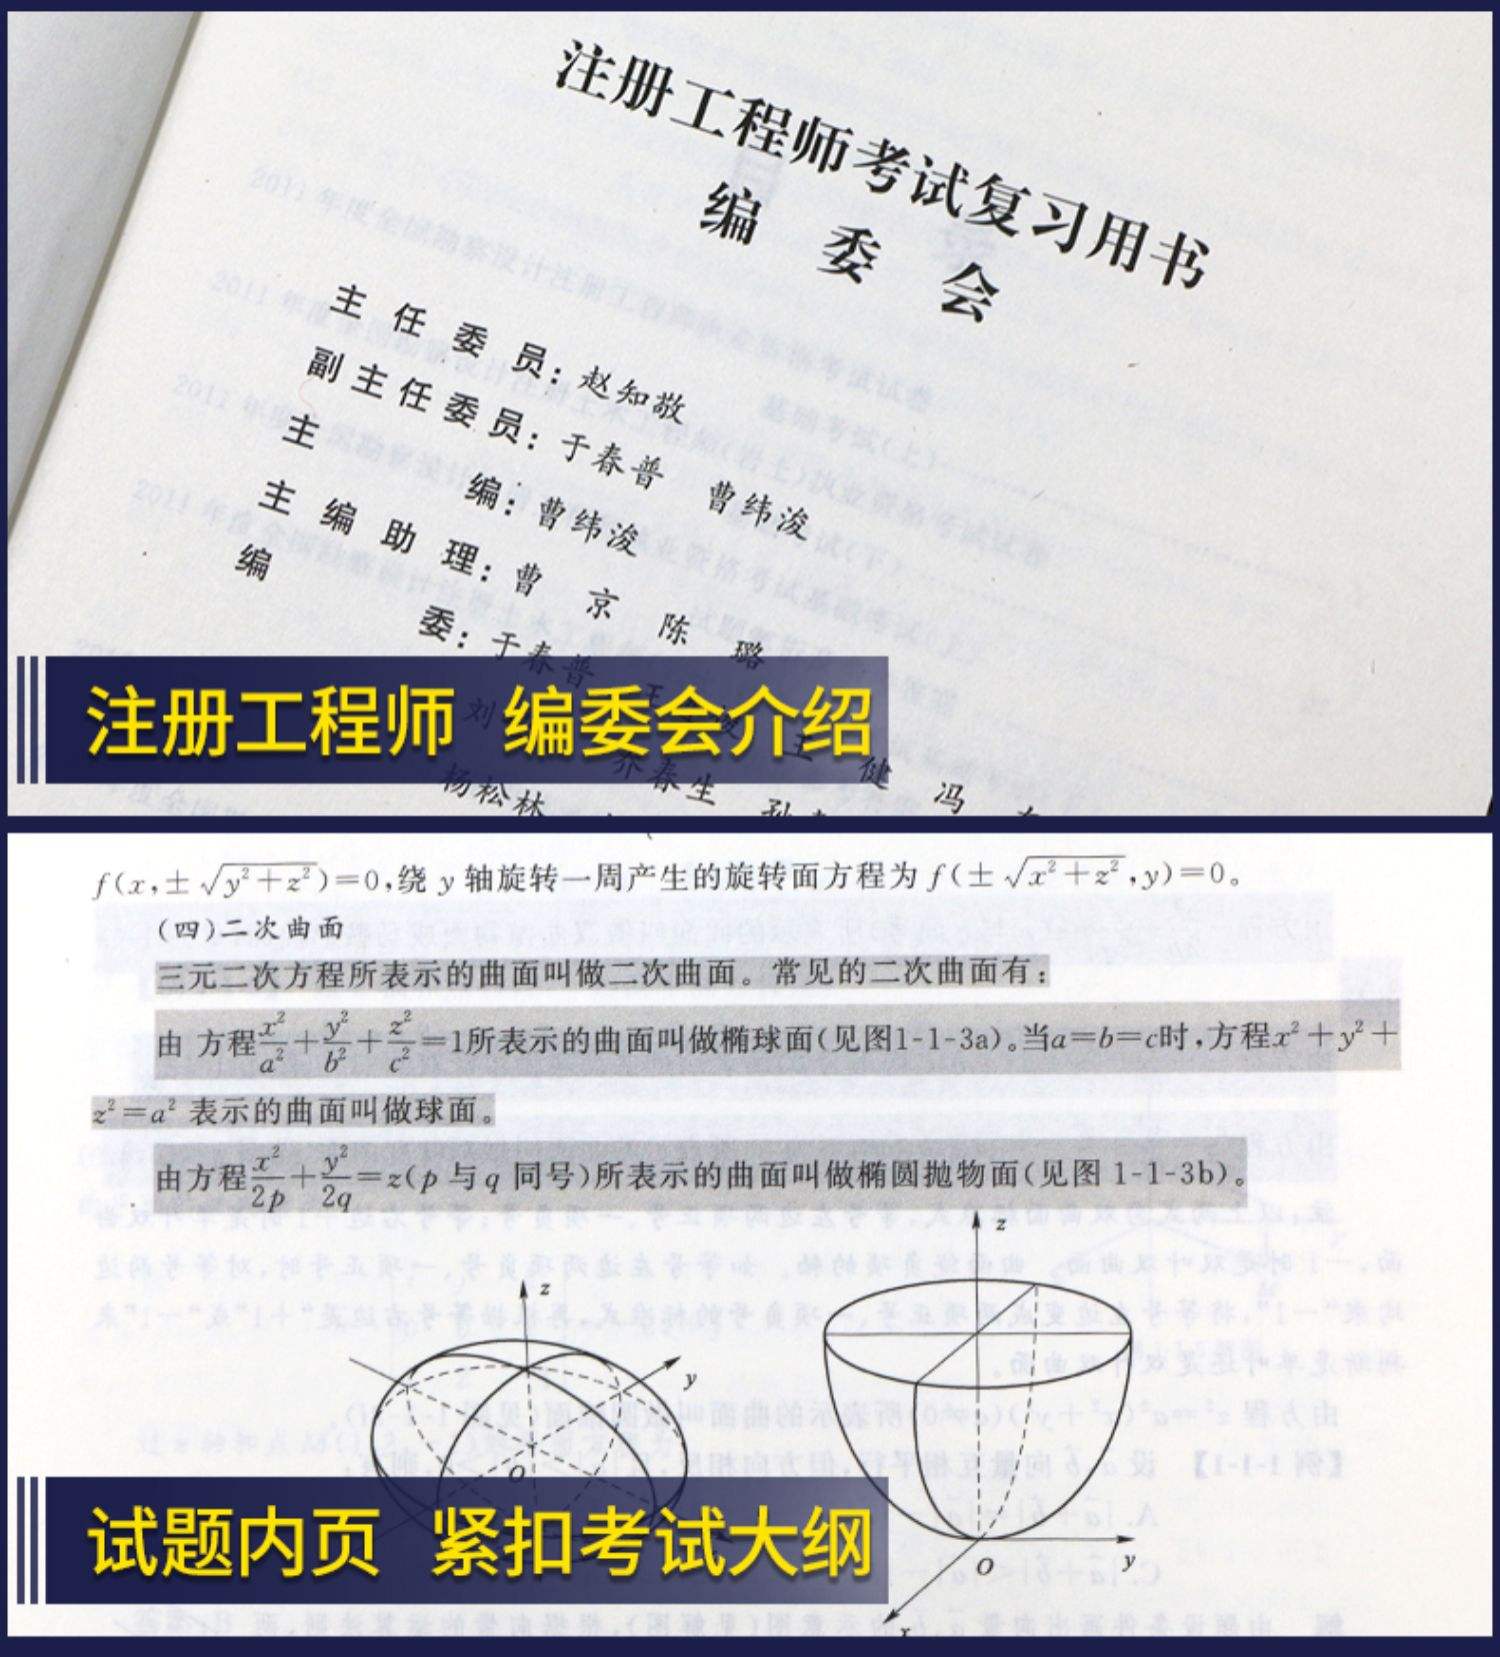 注册工程师考试复习用书
编 委 会
主任委员：赵知敬
副主任委员：于春普 曹纬浚
主 编：曹纬浚
主编助理：曹 京 陈 璐
编 委：于春普
刘
王 健 冯
乔春生 孙
杨松林
注册工程师 编委会介绍
f(x,±√(y²+z²))=0,绕 y 轴旋转一周产生的旋转面方程为 f(±√(x²+z²),y)=0。
(四)二次曲面
三元二次方程所表示的曲面叫做二次曲面。常见的二次曲面有：
由 方程x²/a²+y²/b²+z²/c²=1所表示的曲面叫做椭球面(见图1-1-3a)。当a=b=c时,方程x²+y²+
z²=a² 表示的曲面叫做球面。
由方程x²/2p+y²/2q=z(p 与 q 同号)所表示的曲面叫做椭圆抛物面(见图 1-1-3b)。
z
y
O
z
O
y
x
试题内页 紧扣考试大纲